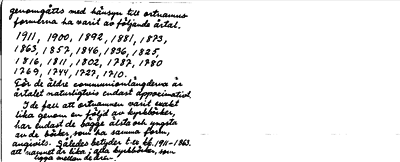 genomgåtts med hänsyn till ortnamns
formerna ha varit av följande årtal.
1911, 1900, 1892, 1881, 1873,
1863, 1857, 1846, 1836, 1825,
1816, 1811, 1802, 1787, 1780
1769, 1744, 1727, 1710.
För de äldre communionlängderna är
årtalet naturligtvis endast approximativt.
I de fall att ortnamnen varit exakt
lika genom en följd av kyrkböcker,
har endast de bägge älsta och yngsta
av de böcker, som ha samma form,
angivits. Således betyder t-ex kb. 1911-1863.
att namnet är lika i alla kyrkböcker, som
ligga mellan de åren.